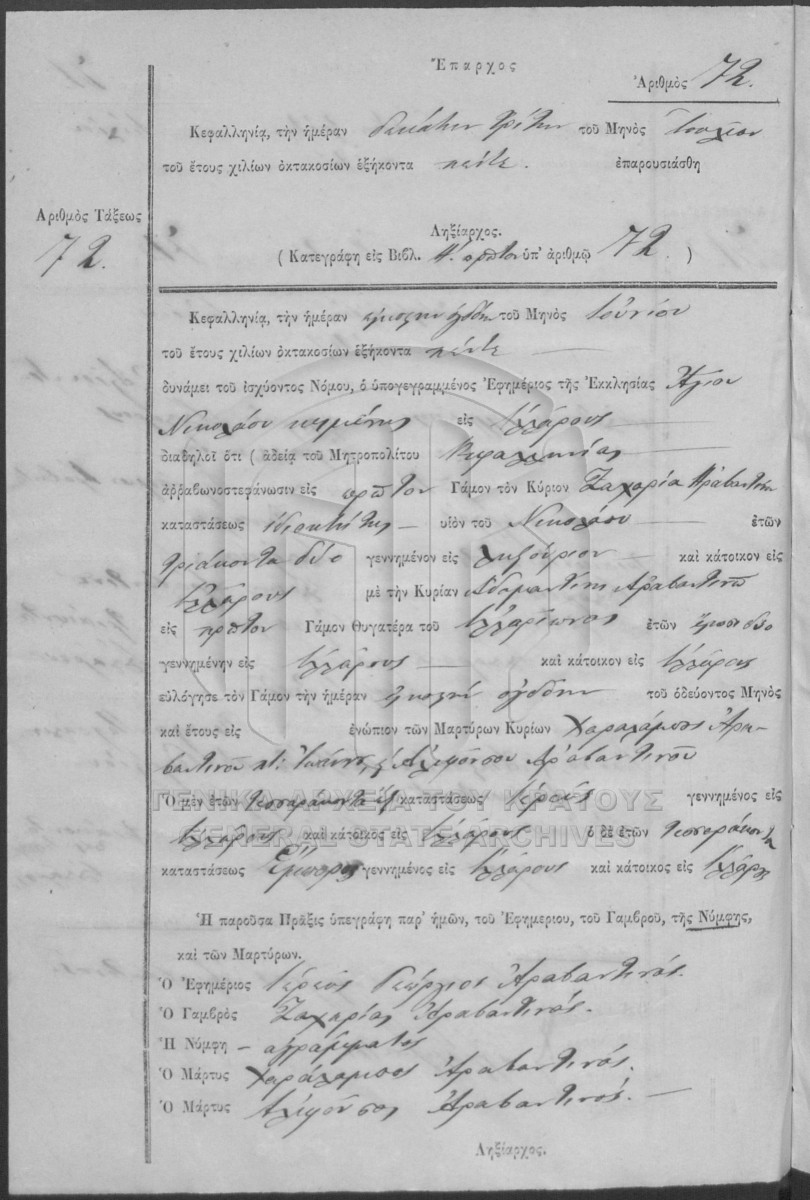 Ἔπαρχος
Ἀριθμὸς 72.
Κεφαλληνίᾳ, τὴν ἡμέραν δεκάτην τρίτην τοῦ Μηνὸς Ἰουλίου
τοῦ ἔτους χιλίων ὀκτακοσίων ἑξήκοντα πέντε. ἐπαρουσιάσθη
Ἀριθμὸς Τάξεως
72.
Ληξίαρχος.
( Κατεγράφη εἰς Βιβλ. πρῶτον ὑπ' ἀριθμῷ 72. )
Κεφαλληνίᾳ, τὴν ἡμέραν εἰκοστὴν ὀγδόην τοῦ Μηνὸς Ἰουνίου
τοῦ ἔτους χιλίων ὀκτακοσίων ἑξήκοντα πέντε
δυνάμει τοῦ ἰσχύοντος Νόμου, ὁ ὑπογεγραμμένος Ἐφημέριος τῆς Ἐκκλησίας Ἁγίου
Νικολάου κειμένης εἰς Ἰλλάρους
διαδηλοῖ ὅτι ( ἀδείᾳ τοῦ Μητροπολίτου Κεφαλληνίας
ἀῤῥαβωνοστεφάνωσιν εἰς πρῶτον Γάμον τὸν Κύριον Ζαχαρία Ἀραβαντινὸν
καταστάσεως ἰδιοκτήτης υἱὸν τοῦ Νικολάου ἐτῶν
τριάκοντα δύο γεννημένον εἰς Ληξούριον καὶ κάτοικον εἰς
Ἰλλάρους μὲ τὴν Κυρίαν Ἀδαμαντίνη Ἀραβαντινοῦ
εἰς πρῶτον Γάμον Θυγατέρα τοῦ Ἰλλαρίωνος ἐτῶν εἴκοσι δύο
γεννημένην εἰς Ἰλλάρους καὶ κάτοικον εἰς Ἰλλάρους
εὐλόγησε τὸν Γάμον τὴν ἡμέραν εἰκοστὴν ὀγδόην τοῦ ὁδεύοντος Μηνὸς
καὶ ἔτους εἰς ἐνώπιον τῶν Μαρτύρων Κυρίων Χαραλάμπους Ἀρα-
βαντινοῦ Ἰωάννου, Ἀλιφόνσου Ἀραβαντινοῦ
Ὁ μὲν ἐτῶν τεσσαράκοντα ἓξ καταστάσεως Ἱερεὺς γεννημένος εἰς
ΓΕΝΙΚΑ ΑΡΧΕΙΑ ΤΟΥ ΚΡΑΤΟΥΣ
GENERAL STATE ARCHIVES
Ἰλλάρους καὶ κάτοικος εἰς Ἰλλάρους ὁ δὲ ἐτῶν τεσσαράκοντα
καταστάσεως Ἔμπορος γεννημένος εἰς Ἰλλάρους καὶ κάτοικος εἰς Ἰλλάρους
Ἡ παροῦσα Πρᾶξις ὑπεγράφη παρ' ἡμῶν, τοῦ Ἐφημερίου, τοῦ Γαμβροῦ, τῆς Νύμφης,
καὶ τῶν Μαρτύρων.
Ὁ Ἐφημέριος Ἱερεὺς Γεώργιος Ἀραβαντινός.
Ὁ Γαμβρὸς Ζαχαρίας Ἀραβαντινός.
Ἡ Νύμφη - ἀγράμματος
Ὁ Μάρτυς Χαράλαμπος Ἀραβαντινός.
Ὁ Μάρτυς Ἀλιφόνσος Ἀραβαντινός.
Ληξίαρχος.